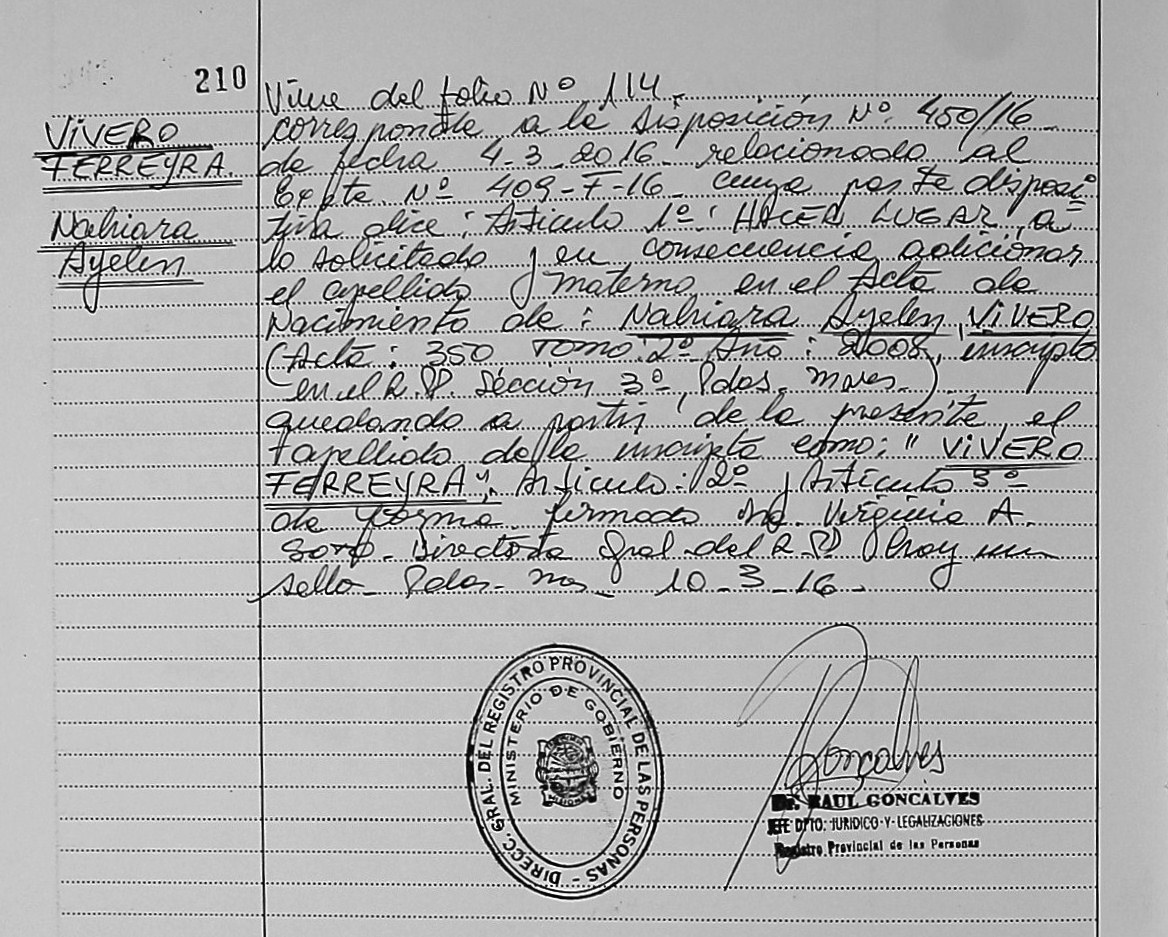 210
VIVERO
FERREYRA.
Nahiara
Ayelen
Viene del folio Nº 114.
corresponde a la disposición Nº 450/16
de fecha 4-3-2016 relacionado al
Expte Nº 409-F-16 cuya parte disposi
tiva dice: Artículo 1º: HACER LUGAR a
lo solicitado y en consecuencia adicionar
el apellido materno en el Acta de
Nacimiento de: Nahiara Ayelen VIVERO
(Acta: 350 Tomo 2º Año: 2008, inscripta
en el R.P. Sección 3º, Pdas. Mnes.)
quedando a partir de la presente el
apellido de la inscripta como: "VIVERO
FERREYRA". Artículo: 2º y Artículo 3º
de forma. firmado Virginia A.
Directora Gral del R.P. hay un
sello. Pdas. Mnes 10-3-16.
DIRECC. GRAL. DEL REGISTRO PROVINCIAL DE LAS PERSONAS
MINISTERIO DE GOBIERNO
MISIONES
Goncalves
Dr. RAUL GONCALVES
JEFE DPTO: JURIDICO Y LEGALIZACIONES
Registro Provincial de las Personas